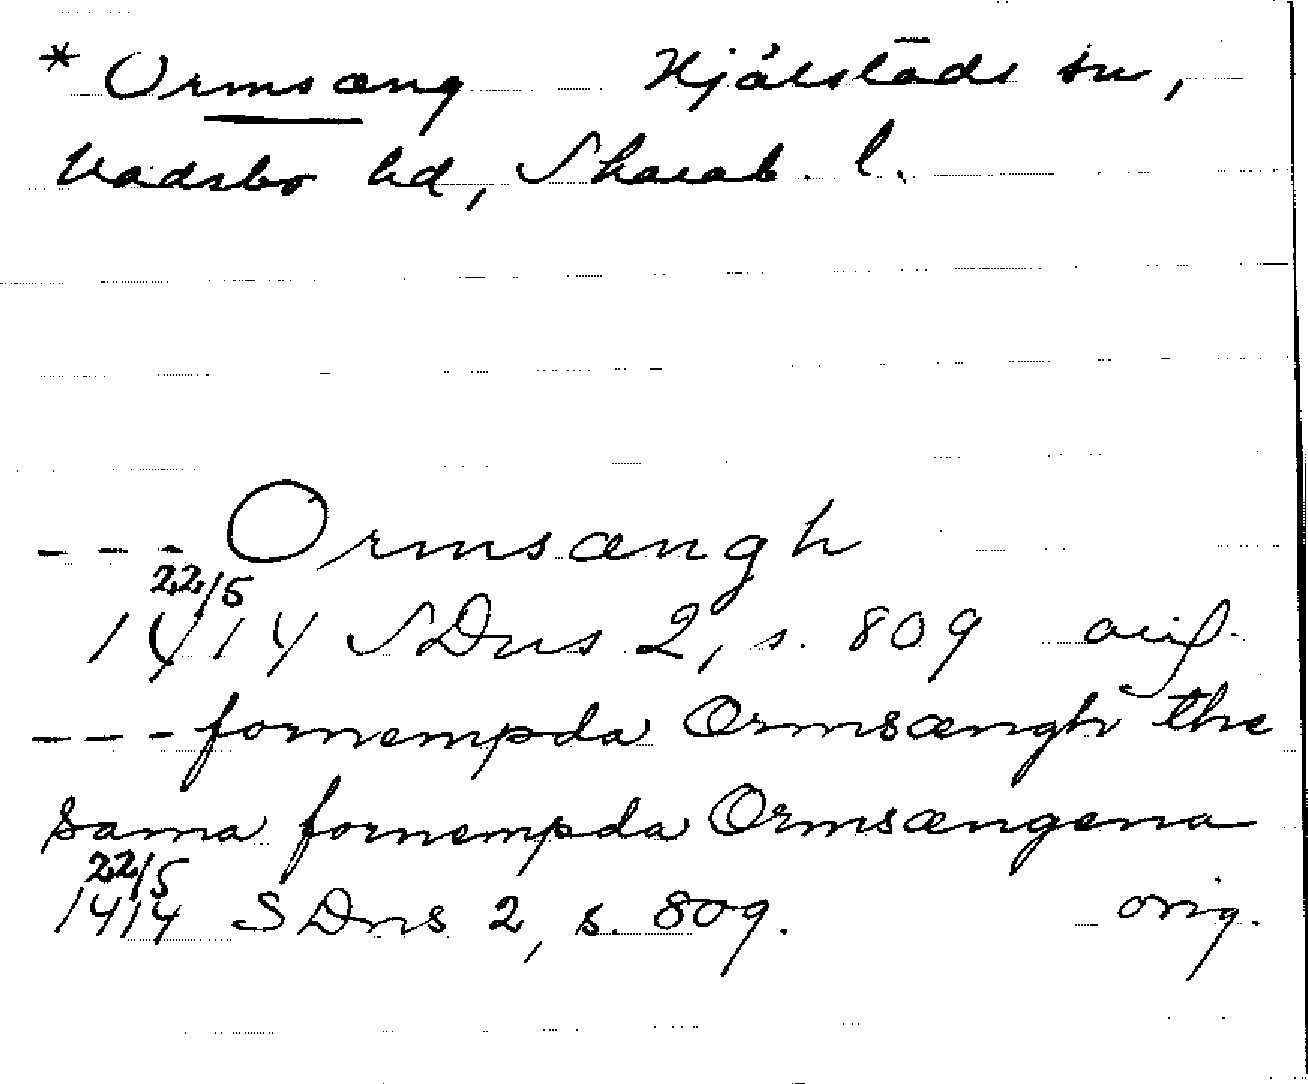 * Ormsæng Hjälstads sn,
Vadsbo hd, Skarab. l.
- - - Ormsængh
22/5
1414 SDns 2, s. 809 orig.
- - - fornempda Ormsængh the
sama fornempda Ormsængena
22/5
1414 SDns 2, s. 809. orig.